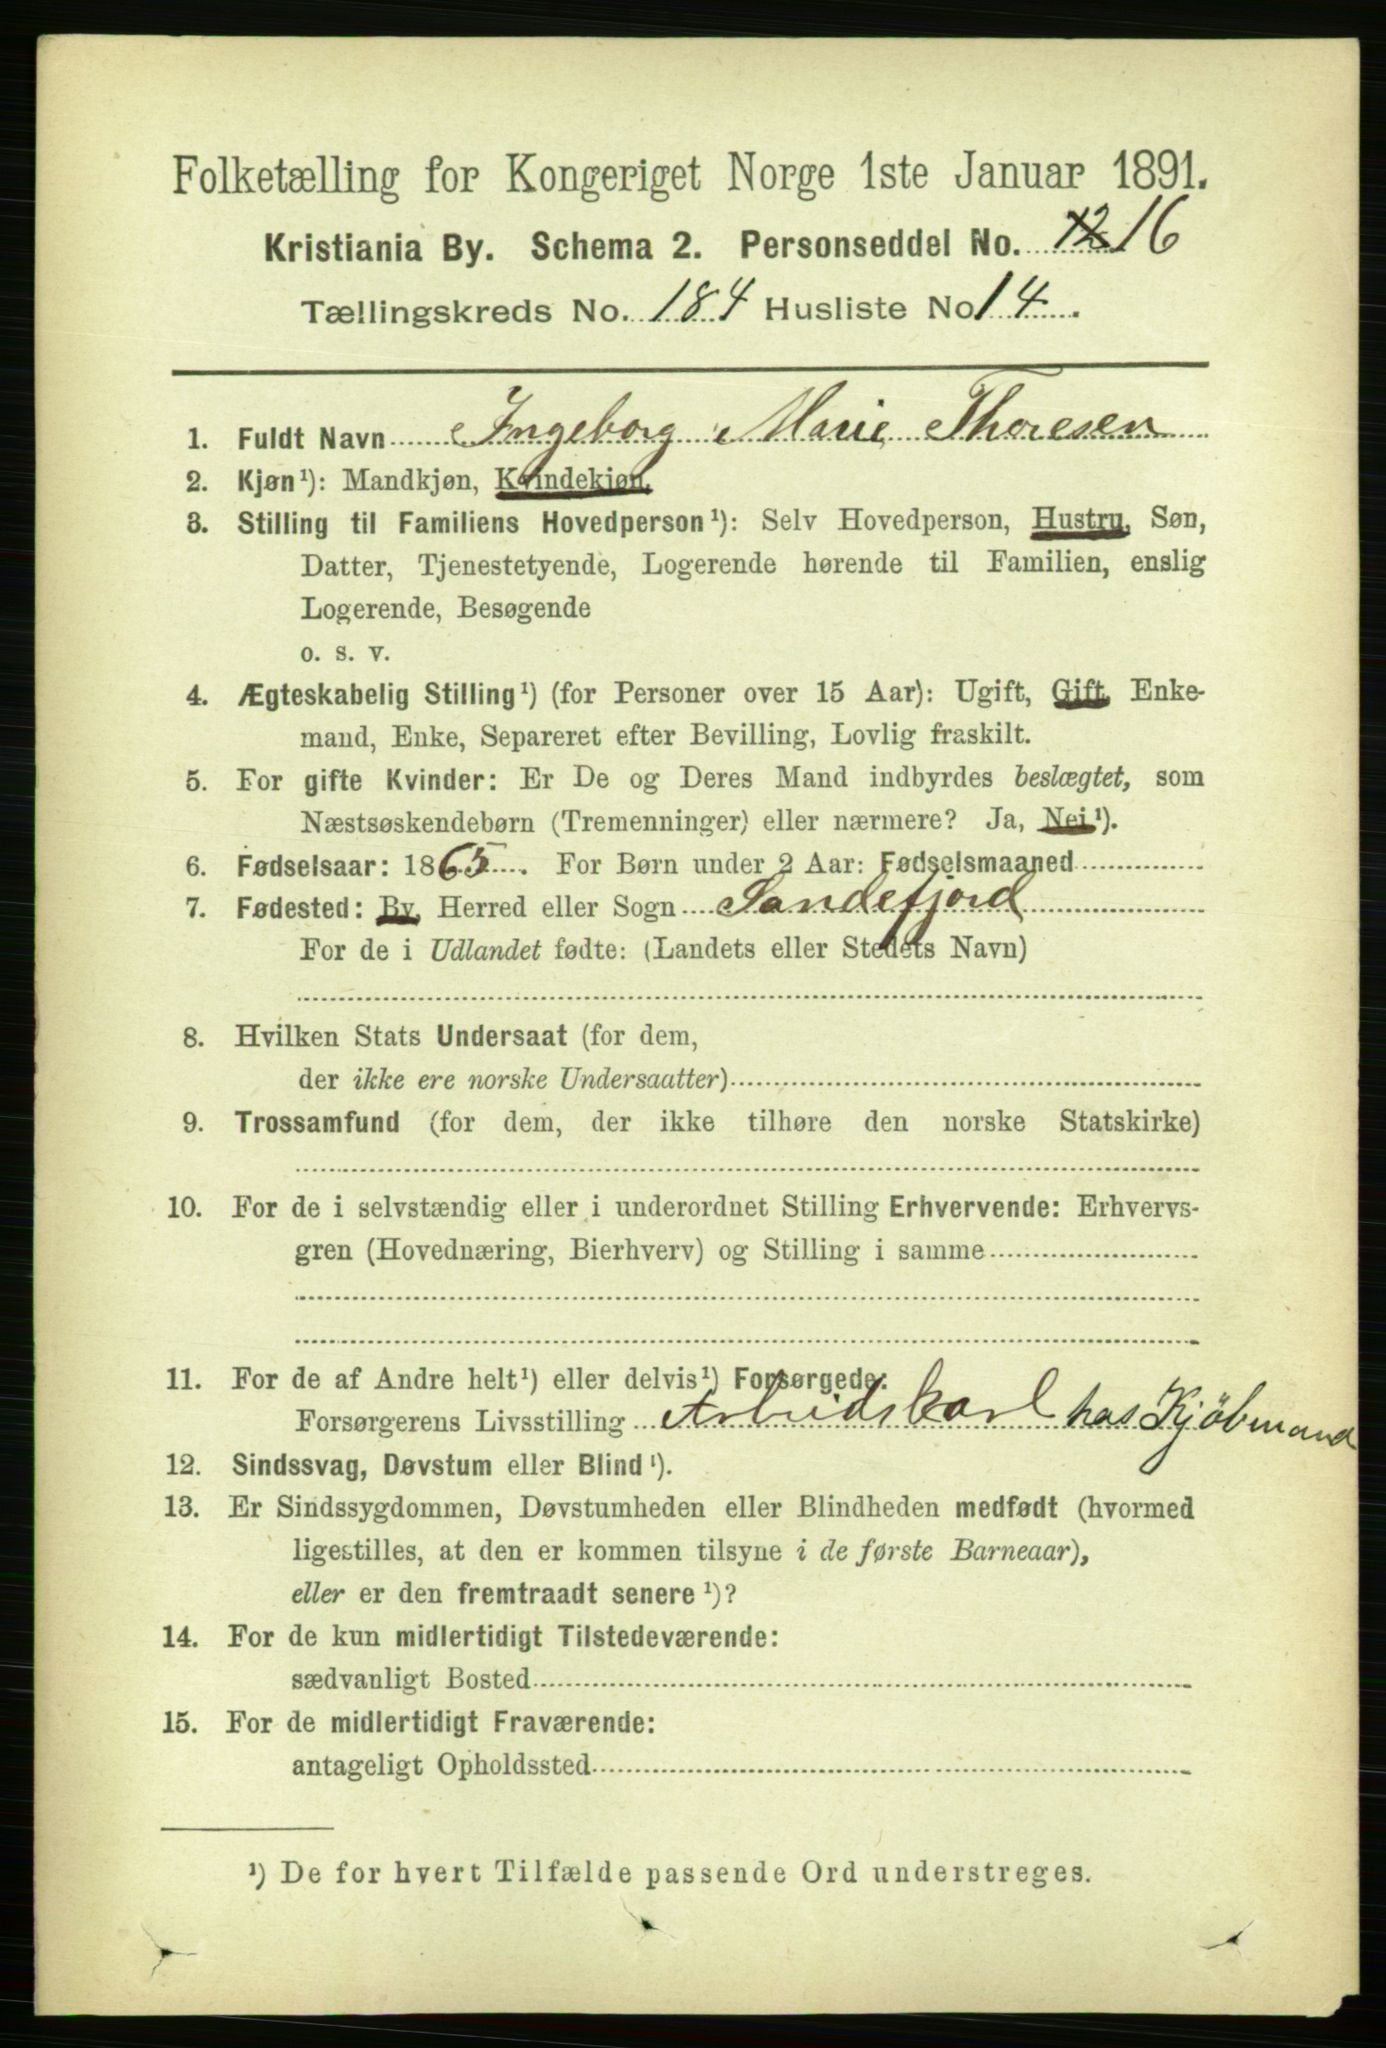 Folketælling for Kongeriget Norge 1ste Januar 1891.
Kristiania By. Schema 2. Personseddel No. 12 16
Tællingskreds No. 184 Husliste No 14.
1. Fuldt Navn Ingeborg Marie Thoresen
2. Kjøn¹): Mandkjøn, Kvindekjøn.
3. Stilling til Familiens Hovedperson¹): Selv Hovedperson, Hustru, Søn,
Datter, Tjenestetyende, Logerende hørende til Familien, enslig
Logerende, Besøgende
o. s. v.
4. Ægteskabelig Stilling¹) (for Personer over 15 Aar): Ugift, Gift, Enke-
mand, Enke, Separeret efter Bevilling, Lovlig fraskilt.
5. For gifte Kvinder: Er De og Deres Mand indbyrdes beslægtet, som
Næstsøskendebørn (Tremenninger) eller nærmere? Ja, Nei¹).
6. Fødselsaar: 1865. For Børn under 2 Aar: Fødselsmaaned
7. Fødested: By, Herred eller Sogn Sandefjord
For de i Udlandet fødte: (Landets eller Stedets Navn)
8. Hvilken Stats Undersaat (for dem,
der ikke ere norske Undersaatter)
9. Trossamfund (for dem, der ikke tilhøre den norske Statskirke)
10. For de i selvstændig eller i underordnet Stilling Erhvervende: Erhvervs-
gren (Hovednæring, Bierhverv) og Stilling i samme
11. For de af Andre helt¹) eller delvis¹) Forsørgede:
Forsørgerens Livsstilling Arbeidskarl hos Kjöbmand
12. Sindssvag, Døvstum eller Blind¹).
13. Er Sindssygdommen, Døvstumheden eller Blindheden medfødt (hvormed
ligestilles, at den er kommen tilsyne i de første Barneaar),
eller er den fremtraadt senere¹)?
14. For de kun midlertidigt Tilstedeværende:
sædvanligt Bosted
15. For de midlertidigt Fraværende:
antageligt Opholdssted
¹) De for hvert Tilfælde passende Ord understreges.